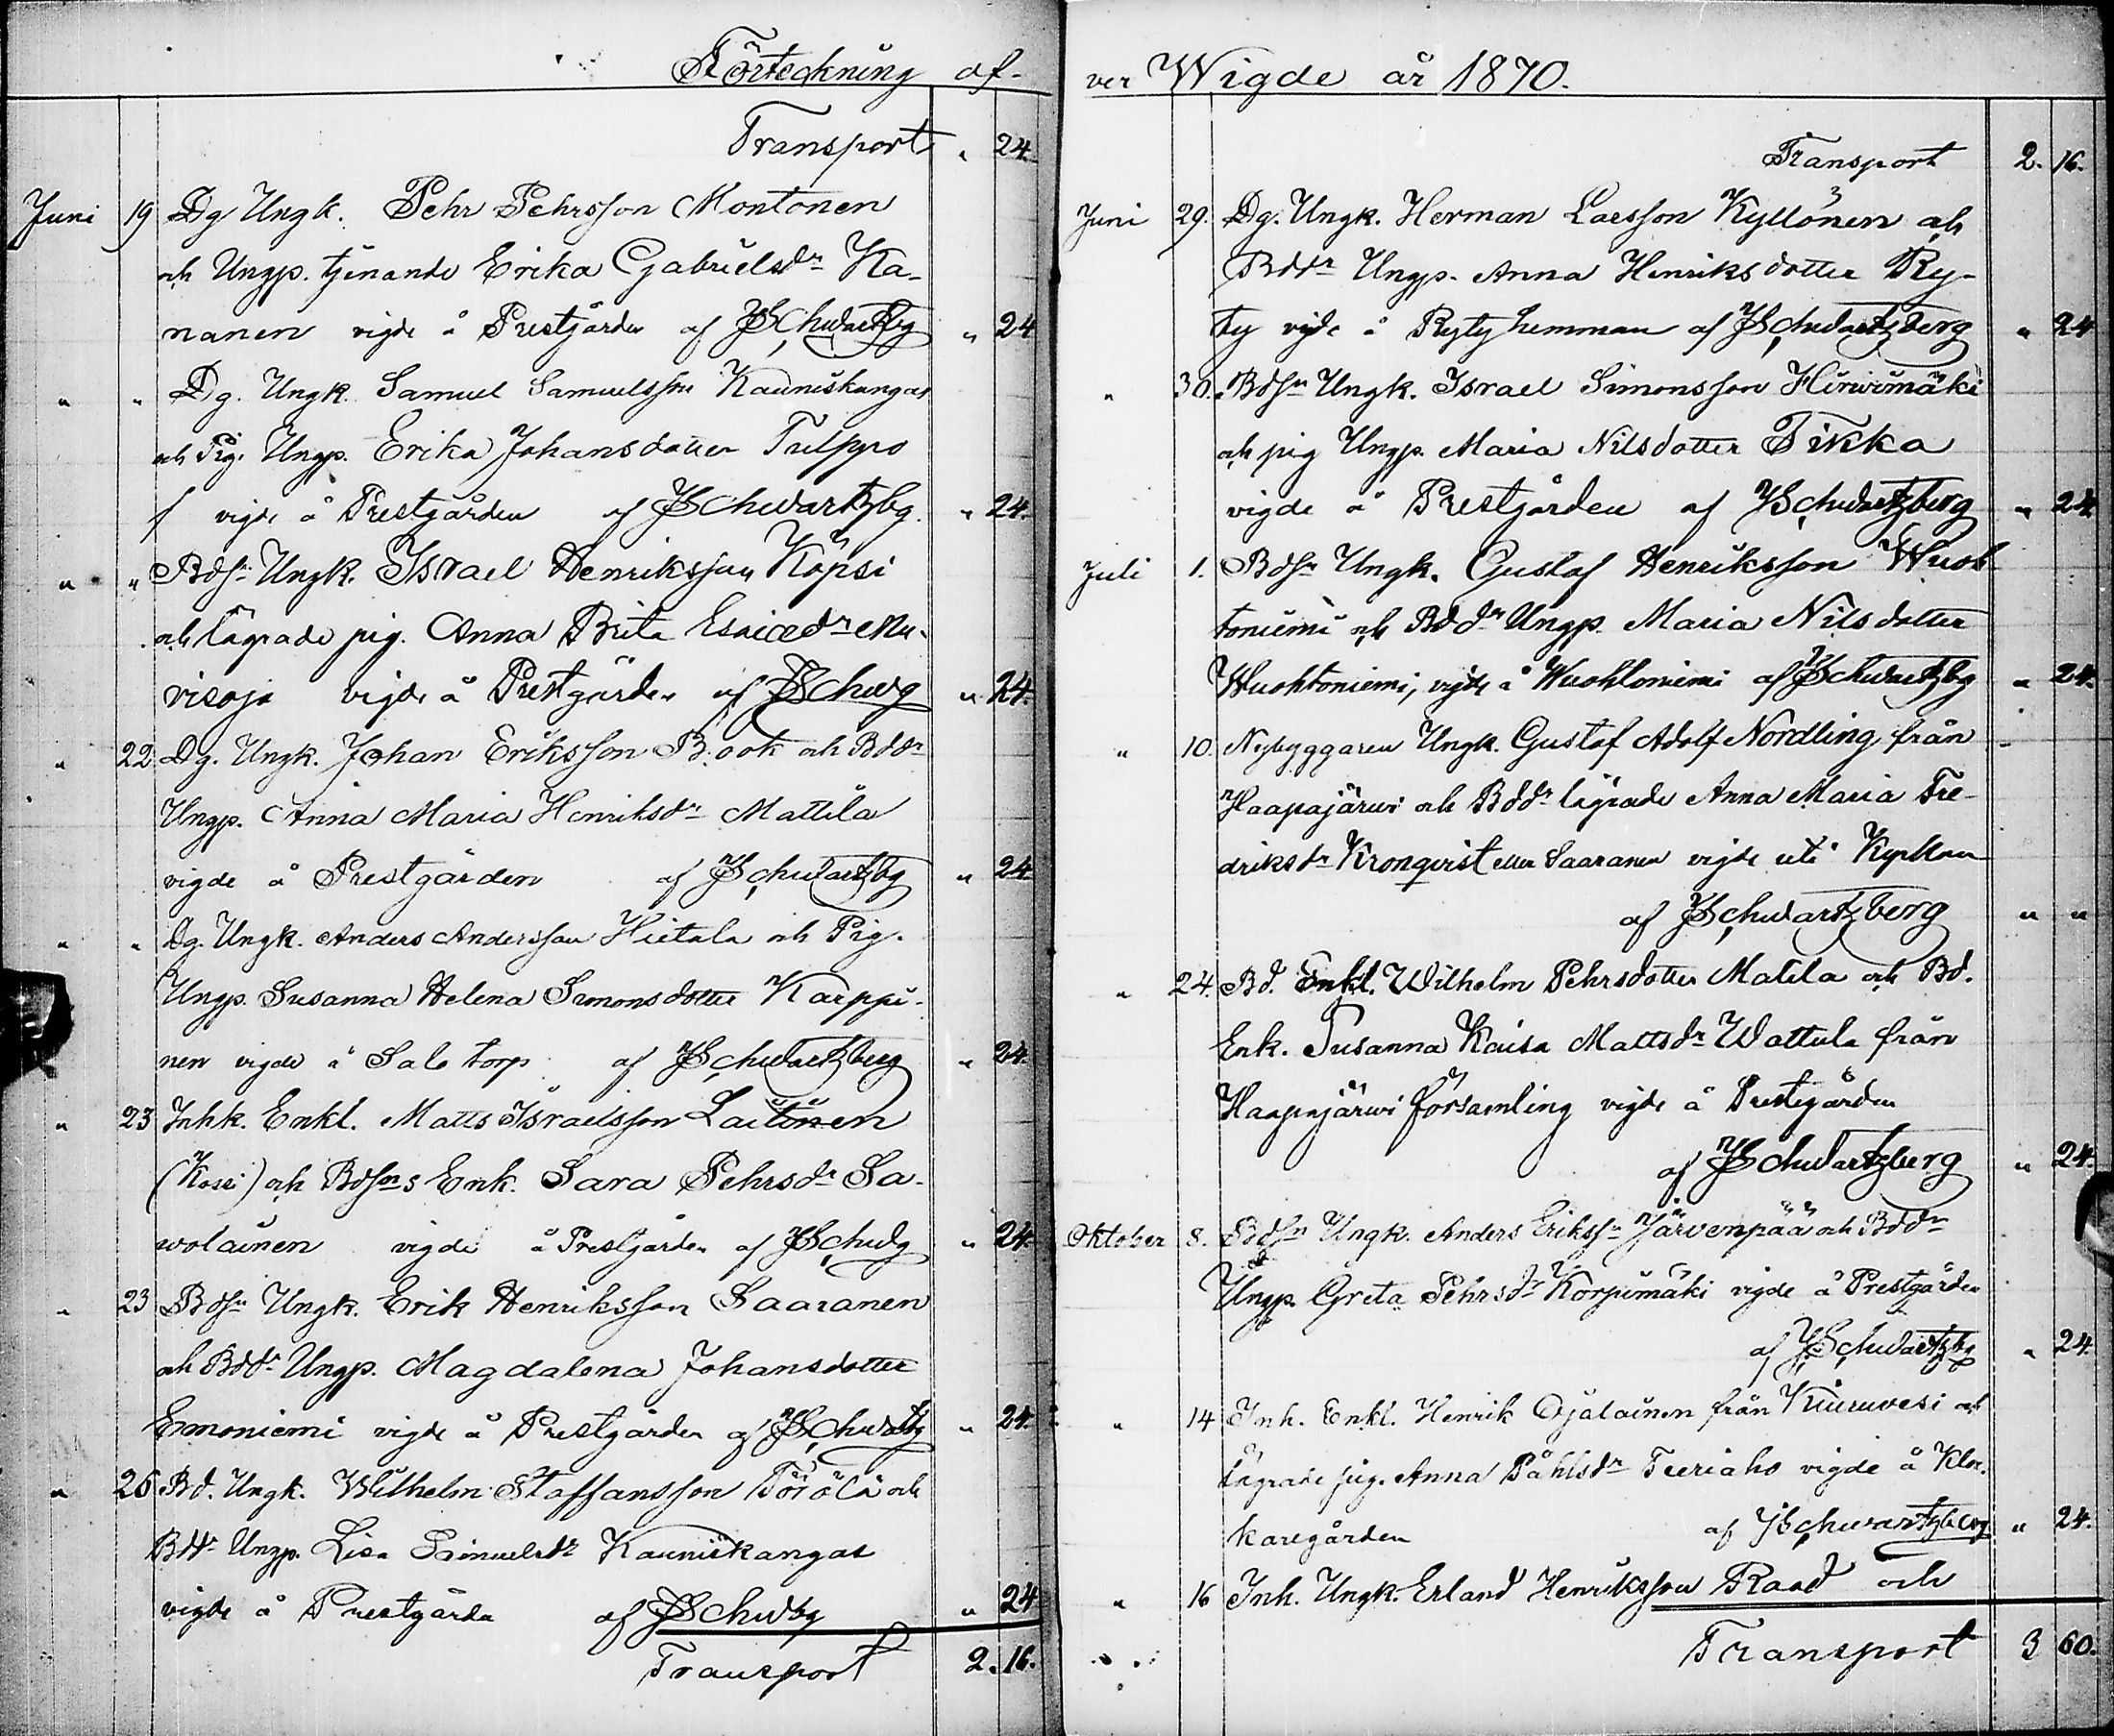 Förteckning öf-
Transport " 24
Juni 19 Dg Ungk. Pehr Pehrsson Montonen
och Ungp. tjenande Erika Gabrielsdr Ka-
nanen vigde å Prestgården af JSchwartzbg " 24
" " Dg. Ungk. Samuel Samuelsson Kauniskangas
och Pig. Ungp. Erika Johansdotter Tulppo
vigde å Prestgården af JSchwartzbg. " 24.
" " Bdsn Ungk. Israel Henriksson Köpsi
och lägrade pig. Anna Brita Esaiædr
visoja vigde å Prestgården af JSchwg " 24.
" 22 Dg. Ungk. Johan Eriksson Book och Bddr
Ungp. Anna Maria Henriksdr Mattila
vigde å Prestgården af JSchwartzbg " 24
" " Dg. Ungk. Anders Andersson Hietala och Pig.
Ungp. Susanna Helena Simonsdotter Karppi-
nen vigde å Salo torp af JSchwartzberg " 24.
" 23 Inhk. Enkl. Matts Israelsson Laitinen
(Kossi) och Bdsns Enk. Sara Pehrsdr Sa-
wolainen vigde å Prestgården af JSchwg " 24.
" 23 Bdsn Ungk. Erik Henriksson Saaranen
och Bddr Ungp. Magdalena Johansdotter
Emoniemi vigde å Prestgården af JSchwatzg " 24.
" 26 Bd. Ungk. Wilhelm Staffansson Törölä och
Bddr Ungp. Lisa Samuelsdr Kauniskangas
vigde å Prestgården af JSchwbg " 24
Transport 2. 16.
ver Wigde år 1870.
Transport 2. 16.
Juni 29. Dg. Ungk. Herman Larsson Kyllönen och
Bddr Ungp. Anna Henriksdotter Ry-
ty vigde å Ryty hemman af JSchwartzberg " 24
" 30. Bdsn Ungk. Israel Simonsson Hirvimäki
och pig Ungp. Maria Nilsdotter Tikka
vigde å Prestgården af JSchwartzberg " 24
Juli 1. Bdsn Ungk. Gustaf Henriksson Wuoh
toniemi och Bddr Ungp. Maria Nilsdotter
Wuohtoniemi, vigde å Wuohtoniemi af JSchwartzbg " 24.
" 10. Nybyggaren Ungk. Gustaf Adolf Nordling från
Haapajärwi och Bddr lägrade Anna Maria Fre-
driksdr Kronqvist eller Saaranen vigde uti Kyrkan
af JSchwartzberg " "
" 24. Bd. Enkl. Wilhelm Pehrsdotter Matila och Bd.
Enk. Susanna Kaisa Mattsdr Wattula från
Haapajärwi församling vigde å Prestegården
af JSchwartzberg " 24.
Oktober 8. Bdsn Ungk. Anders Erikssn Järvenpää och Bddr
Ungp. Greta Pehrsdr Korpimäki vigde å Prestgården
af JSchwartzbg " 24.
" 14 Inh. Enkl. Henrik Ojalainen från Kiuruvesi och
lägrade pig. Anna Påhlsdr Teeriaho vigde å Kloc-
karegården af JSchwartzberg " 24.
" 16 Inh. Ungk. Erland Henriksson Raad och
Transport 3 60.